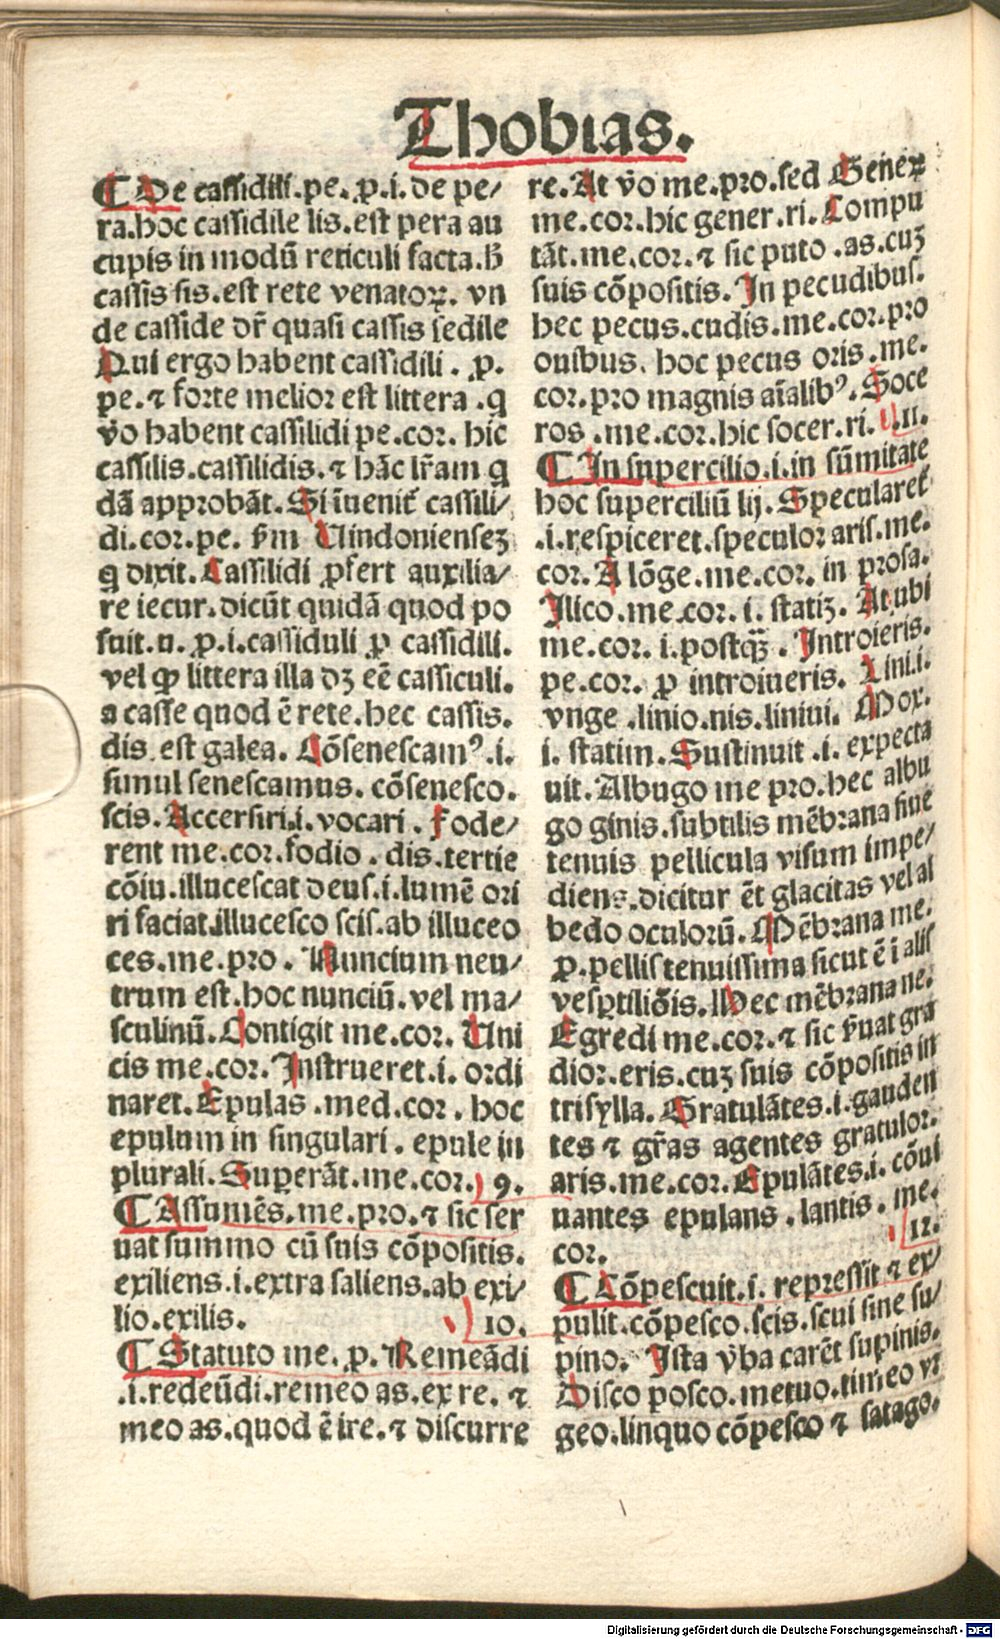 Thobias.
¶ De cassidili.pe.ꝓ.i.de pe/
ra.hoc cassidile lis.est pera au
cupis in modū reticuli facta.h̄
cassis sis.est rete venatoꝝ. vn
de casside dr̄ quasi cassis sedile
Qui ergo habent cassidili. ꝓ.
pe.⁊ forte melior est littera .q
v̄o habent cassilidi pe.cor. hic
cassilis.cassilidis.⁊ hāc lr̄am q
dā approbāt. Si īuenit᷑ cassili/
di.cor.pe. s̄m Uindonienseʒ
q dixit. Cassilidi ꝓfert auxilia/
re iecur.dicūt quidā quod po
suit.u. ꝓ.i.cassiduli ꝓ cassidili.
vel ꝙ littera illa dʒ eē cassiculi.
a casse quod ē rete.hec cassis.
dis.est galea. Cōsenescamꝰ.i.
simul senescamus. cōsenesco.
scis. Accersiri.i.vocari. Fode/
rent me.cor.fodio. dis.tertie
cōiu.illucescat deus.i.lumē ori
ri faciat.illucesco scis.ab illuceo
ces.me.pro. Nuncium neu/
trum est.hoc nunciū.vel ma/
sculinū. Contigit me.cor. Uni
cis me.cor. Instrueret.i. ordi
naret. Epulas .med.cor. hoc
epulum in singulari. epule in
plurali. Superāt.me.cor. 9.
¶ Assumēs.me.pro.⁊ sic ser
uat summo cū suis cōpositis.
exiliens.i.extra saliens.ab exi/
lio.exilis. 10.
¶ Statuto me. ꝓ. Remeādi
.i.redeūdi.remeo as.ex re. ⁊
meo as.quod ē ire.⁊ discurre
re. At v̄o me.pro.sed Generꝝ
me.cor.hic gener.ri. Compu
tāt.me.cor.⁊ sic puto .as.cuʒ
suis cōpositis. In pecudibus.
hec pecus.cudis.me.cor.pro
ouibus. hoc pecus oris.me.
cor.pro magnis aīalibꝰ. Soce
ros .me.cor.hic socer.ri. .11.
¶ In supercilio.i.in sūmitate
hoc superciliū lij. Specularet᷑
.i.respiceret.speculor aris.me.
cor. A lōge.me.cor. in prosa.
Ilico.me.cor. i. statiʒ. At ubi
me.cor. i.postq̄ʒ. Introieris.
pe.cor. ꝓ introiueris. Lini.i.
vnge .linio.nis.liniui. Mox.
i. statim. Sustinuit .i. expecta
uit. Albugo me pro.hec albu
go ginis.subtilis mēbrana siue
tenuis pellicula visum impe/
diens.dicitur ēt glacitas vel al
bedo oculorū. Mēbrana me.
ꝓ.pellis tenuissima sicut ē ī alis
vesꝑtiliōis. Nec mēbrana ne.
Egredi me.cor.⁊ sic s̄uat gra
dior.eris.cuʒ suis cōpositis in
trisylla. Gratulātes.i.gauden
tes ⁊ gr̄as agentes gratulor.
aris.me.cor. Epulātes.i. cōui
uantes epulans .lantis. me.
cor. 12.
¶ Cōpescuit.i. repressit ⁊ ex/
pulit.cōpesco.scis.scui sine su/
pino. Ista v̄ba carēt supinis.
Disco posco.metuo.timeo vr̄
geo.linquo cōpesco ⁊ satago.
Digitalisierung gefördert durch die Deutsche Forschungsgemeinschaft - DFG